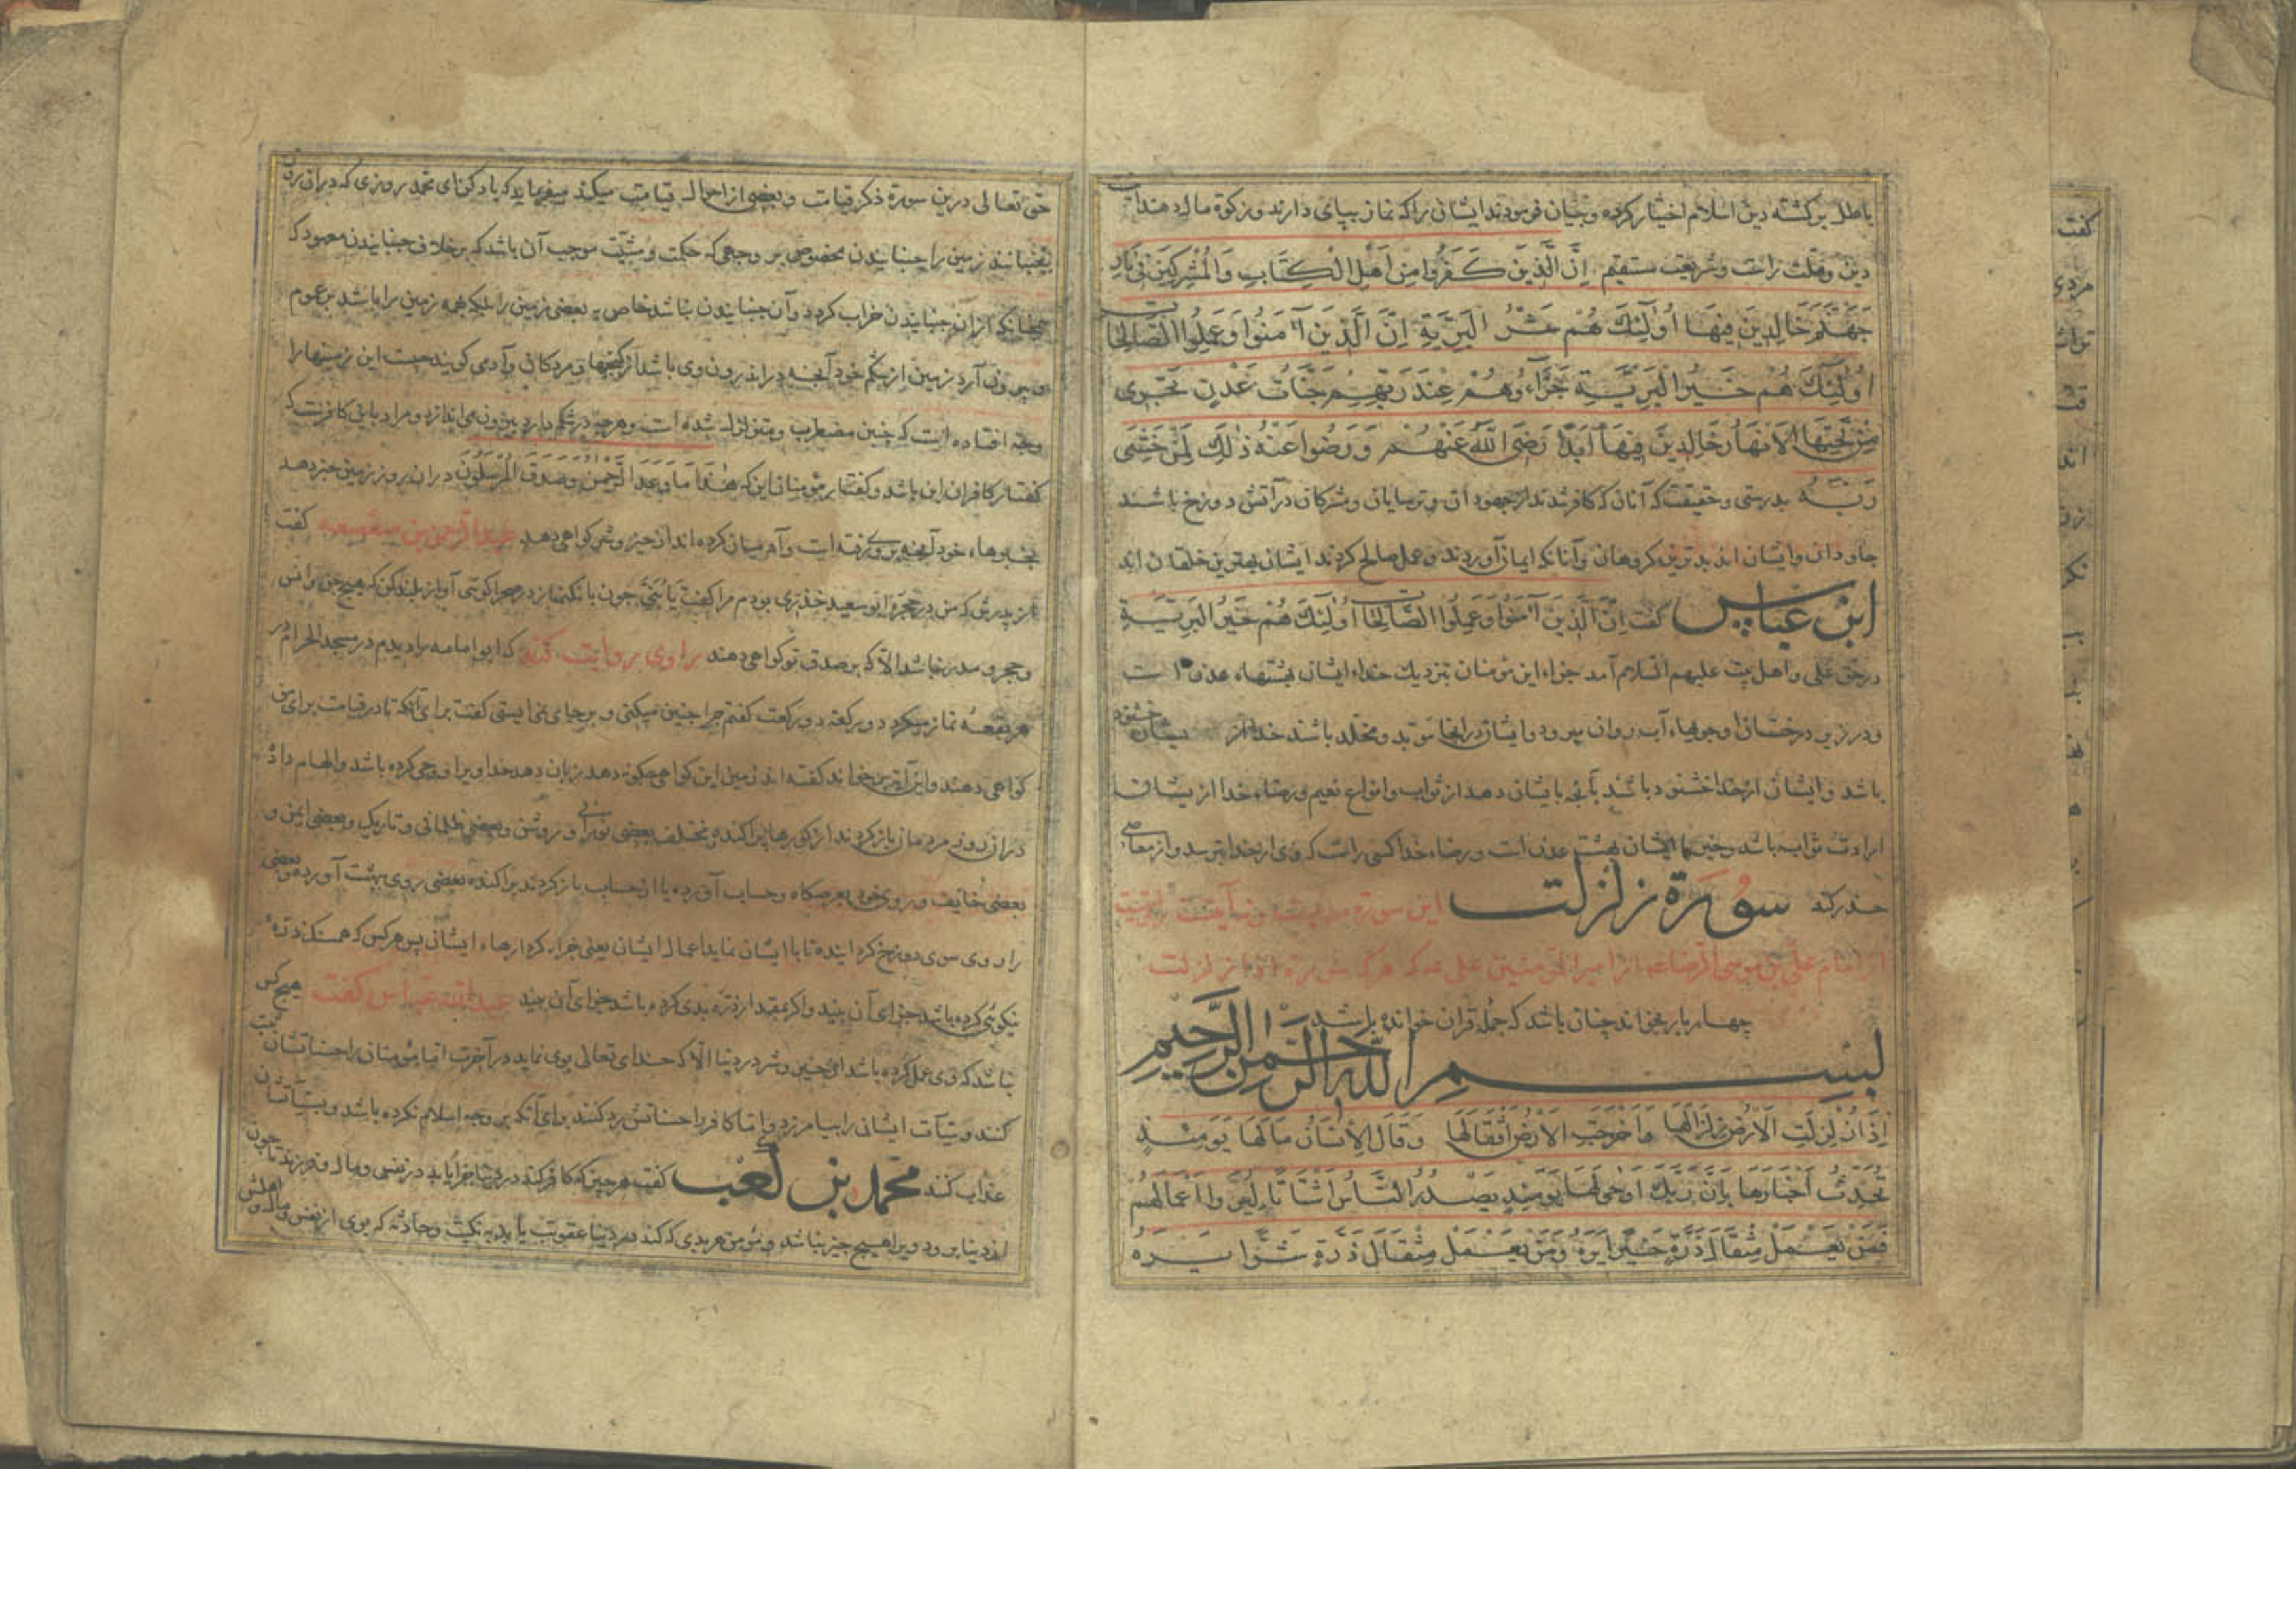 باطل برکشته دین اسلام اختیار کرده و چنان فرمودند ایشان را که نماز بپای دارند و زکوة مال دهند
دین و ملت راست و شریعت مستقیم اِنَّ الَّذینَ کَفَرُوا مِن اَهلِ الکِتَابِ وَالمُشرِکینَ فِی نَارِ
جَهَنَّمَ خَالِدینَ فِیهَا اُولٰئِکَ هُم شَرُّ البَرِیَّةِ اِنَّ الَّذینَ آمَنُوا وَعَمِلُوا الصَّالِحَات
اُولٰئِکَ هُم خَیرُ البَرِیَّةِ جَزَاؤُهُم عِندَ رَبِّهِم جَنَّاتُ عَدنٍ تَجرِی
مِن تَحتِهَا الاَنهَارُ خَالِدِینَ فِیهَا اَبَدًا رَضِیَ اللهُ عَنهُم وَرَضُوا عَنهُ ذٰلِکَ لِمَن خَشِیَ
رَبَّهُ بدرستی و حقیقت که آنان که کافر شدند از جهودان و ترسایان و مشرکان در آتش دوزخ باشند
جاودان و ایشان اند بدترین کروهان و آنانکه ایمان آوردند و عمل صالح کردند ایشان بهترین خلقان اند
ابن عباس کفت اِنَّ الَّذینَ آمَنُوا وَعَمِلُوا الصَّالِحَات اُولٰئِکَ هُم خَیرُ البَرِیَّةِ
در حق علی و اهل بیت علیهم السلام آمد جزاء این مؤمنان نزدیک خداء ایشان بهشتهاء عدن است
و در زیر درختان او جویهاء آب روان میرود و ایشان در انجا مؤبد و مخلد باشند خدا از یشان خشنود
باشد و ایشان از خدا خشنود باشند بآنچه بایشان دهد از ثواب و انواع نعیم و رضاء خدا از یشان
ارادت ثواب باشد و ایشان بهشت عدن است و رضاء خدا کسی راست که وی از خدا بترسد و از معاصی
حذر کند سورة زلزلت این سوره است آیت
امام علی بن موسی الرضا از امیر المؤمنین علی که هر که سورة اذا زلزلت
چهار بار بخواند چنان باشد که جمله قران خوانده باشد
بسم الله الرحمن الرحیم
اِذَا زُلزِلَتِ الاَرضُ زِلزَالَهَا وَاَخرَجَتِ الاَرضُ اَثقَالَهَا وَقَالَ الاِنسَانُ مَا لَهَا یَومَئِذٍ
تُحَدِّثُ اَخبَارَهَا بِاَنَّ رَبَّکَ اَوحٰی لَهَا یَومَئِذٍ یَصدُرُ النَّاسُ اَشتَاتًا لِیُرَوا اَعمَالَهُم
فَمَن یَعمَل مِثقَالَ ذَرَّةٍ خَیرًا یَرَهُ وَمَن یَعمَل مِثقَالَ ذَرَّةٍ شَرًّا یَرَهُ
حق تعالی درین سورة ذکر قیامت و بعضی از احوال قیامت میکند میفرماید که یاد کن ای محمد روزی که دران روز
بجنبانند زمین را جنبانیدن مخصوص بر وجهی که حکمت و مشیّت موجب آن باشد که بر خلاف جنبانیدن معهود که
چنانکه از ان جنبانیدن خراب کردد و آن جنبانیدن نباشد خاص به بعضی زمین را بلکه همه زمین را باشد بر عموم
و بیرون آرد زمین از شکم خود آنچه در اندرون وی باشد از کنجها و مردکان و آدمی کویند چیست این زمین را
و چه افتاده است که چنین مضطرب و متزلزل شده است و هر چه در شکم دارد بیرون می اندازد و مراد باین کافرست که
کفتار کافران این باشد و کفتار مؤمنان این که هٰذَا مَا وَعَدَ الرَّحمٰنُ وَصَدَقَ المُرسَلُونَ دران روز زمین خبر دهد
بخبرهاء خود آنچه بر وی رفته است و آدمیان کرده اند از خیر و شر کواهی دهد عبد الرحمن بن صعصعه کفت
از پدرش که من در حجرة ابو سعید خدری بودم مرا کفت یَا بُنَیَّ چون بانک نماز در صحرا کوئی آواز بلند کن که هیچ جن و انس
و حجر و مدر نباشد الّا که بر صدق تو کواهی دهند راوی روایت کند که ابو امامه را دیدم در مسجد الحرام در
هر بقعه نماز میکرد دو رکعت دو رکعت کفتم چرا چنین میکنی و بر جای نمی ایستی کفت برای آنکه تا در قیامت برای من
کواهی دهند و این آیت بر خواند کفته اند زمین این کواهی چکونه دهد زبان دهد خدا او را و وحی کرده باشد و الهام داده
دران روز مردمان باز کردند از کورها پراکنده مختلف بعضی نورانی و روشن و بعضی ظلمانی و تاریک و بعضی ایمن و
بعضی خائف و روی خود بعرصکاه و حساب آورده یا از حساب باز کردند پراکنده بعضی روی بهشت آورده و بعضی
را روی سوی دوزخ کرد اینده تا با ایشان نماید اعمال ایشان یعنی جزاء کردارهاء ایشان پس هر کس که همسنک ذرّه
نیکوئی کرده باشد جزای آن بیند و اکر بمقدار ذرّه بدی کرده باشد جزای آن بیند عبد الله عباس کفت هیچ کس
نباشد که وی عمل کرده باشد از خیر و شر در دنیا الّا که خدای تعالی بوی نماید در آخرت اما مؤمنان را حسناتشان ثبت
کنند و سیّآت ایشان را بیامرزد و اما کافر را حسناتش رد کنند برای آنکه بر وجه اسلام نکرده باشد و بسیّآتشان
عذاب کنند محمد بن کعب کفت هر چیز که کافر کند در دنیا جزا یابد در نفس و مال و فرزند تا چون
از دنیا برود ویرا هیچ چیز نباشد و مؤمن هر بدی که کند در دنیا عقوبت یابد به نکبت و حادثه که بوی از نفس و مال و اهلش